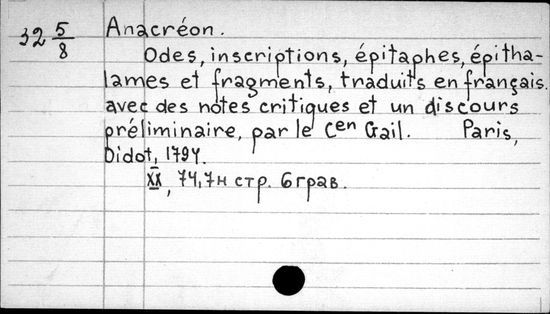 32 5/8 Anacréon.
Odes, inscriptions, épitaphes, épitha-
lames et fragments, traduits en français.
avec des notes critiques et un discours
préliminaire, par le Cen Gail. Paris,
Didot, 1794.
XX, 74, 7н стр. 6 грав.